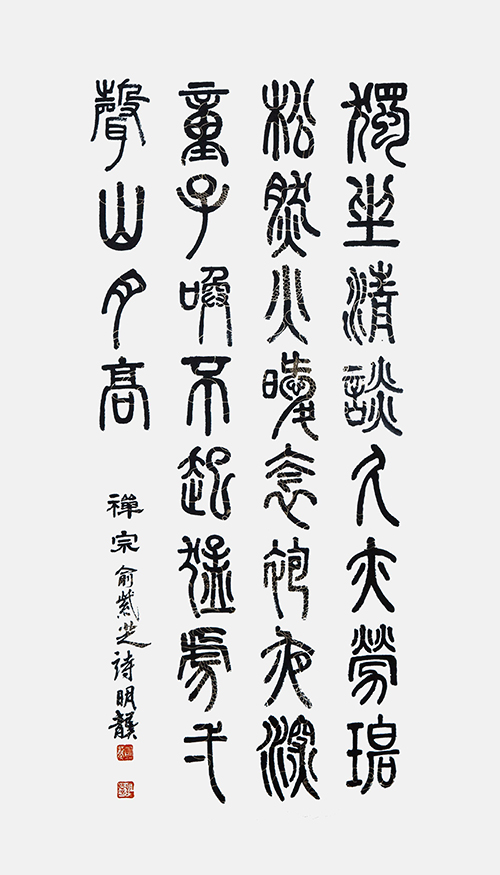 獨坐清談久亦勞碧
松然火暖衾袍夜深
童子喚不起猛虎弌
聲山月高
禪宗俞紫芝詩明